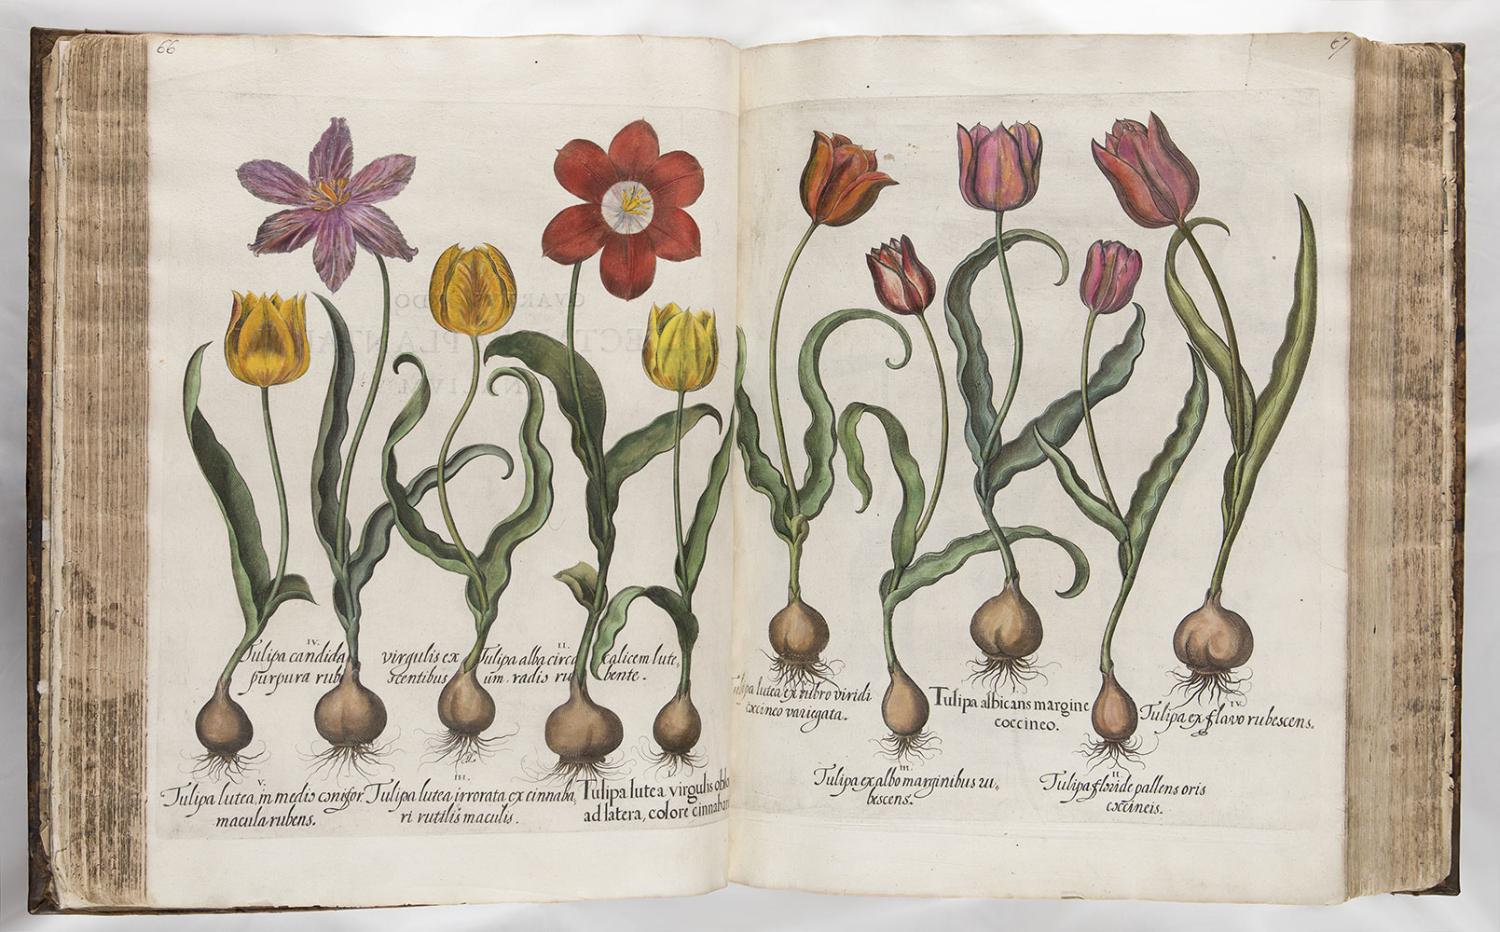 66
IV.
Tulipa candida virgulis ex
purpura rub scentibus
II.
Tulipa alba circa calicem lute,
um. radis ru bente.
V.
Tulipa lutea, in medio
macula rubens.
III.
Tulipa lutea irrorata ex cinnaba,
ri rutilis maculis.
I.
Tulipa lutea virgulis oblo
ad latera, colore cinnabari
67
lutea ex rubro viridi
coccineo variegata.
III.
Tulipa ex albo marginibus ru,
bescens.
Tulipa albicans margine
coccineo.
II.
Tulipa pallens oris
coccineis.
IV.
Tulipa ex flavo rubescens.